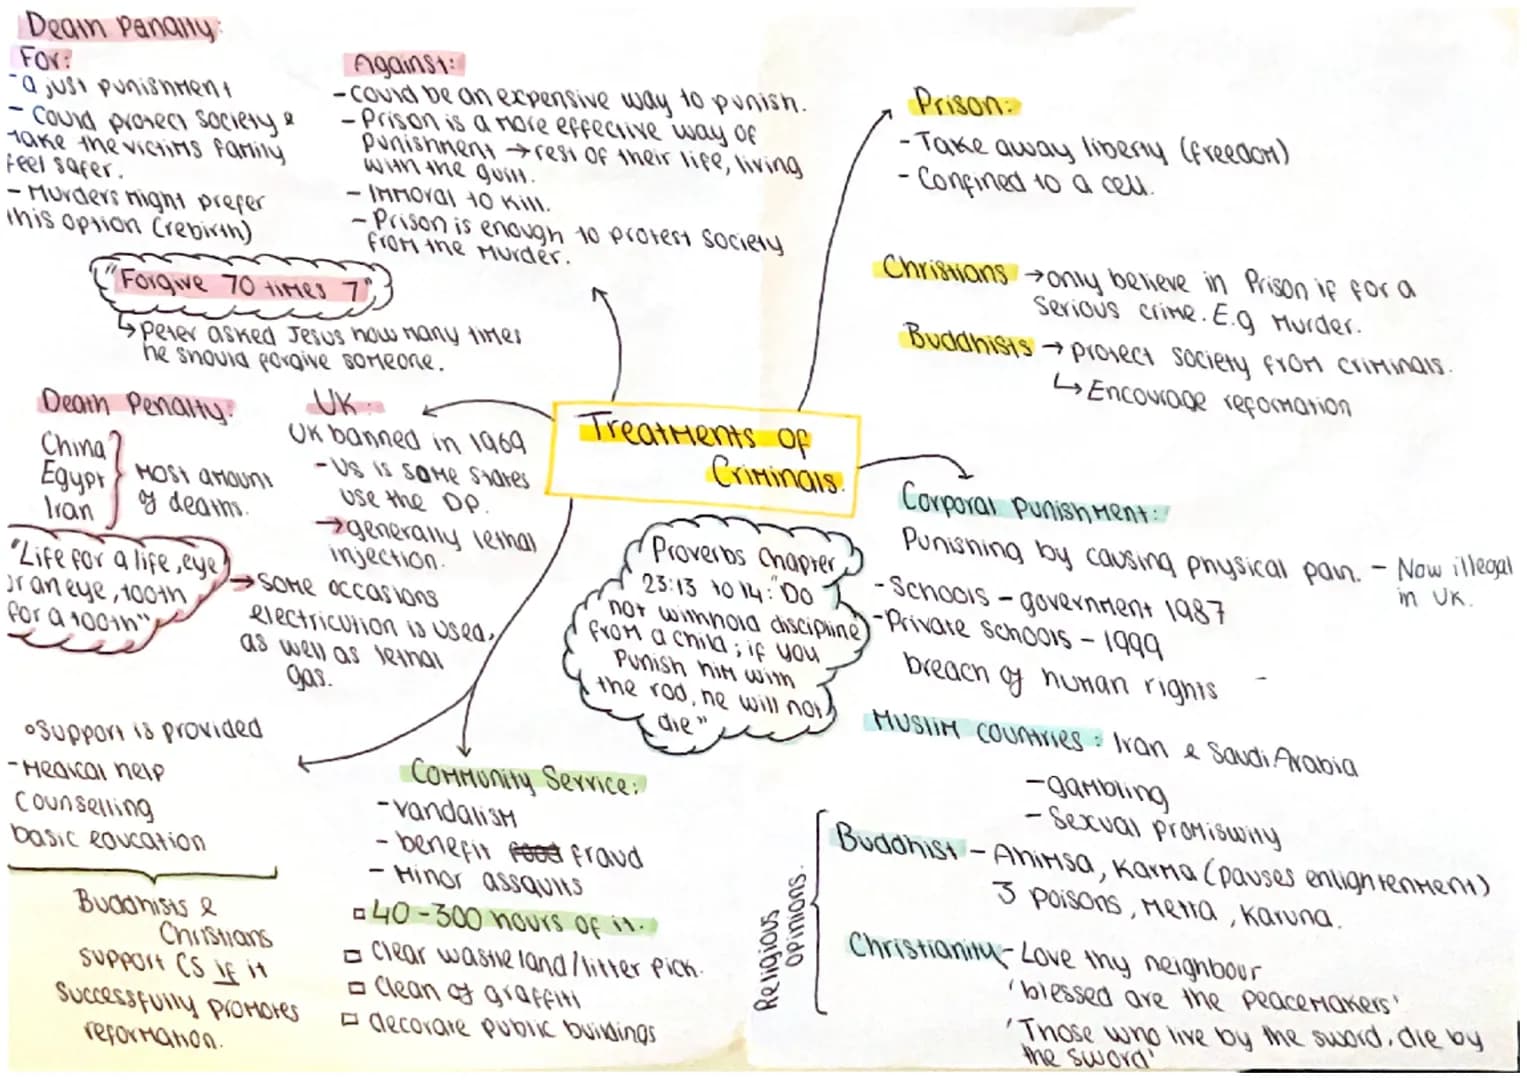 Death Penalty:
For:
- a just punishment
- Could protect society &
make the victims family
feel safer.
- Murders might prefer
this option (rebirth)
Against:
- could be an expensive way to punish.
- Prison is a more effective way of
punishment → rest of their life, living
with the guilt.
- Immoral to kill.
- Prison is enough to protest society
from the murder.
"Forgive 70 times 7"
↳ Peter asked Jesus how many times
he should forgive someone.
Death Penalty:
China
Egypt
Iran
most amount
of deaths.
"Life for a life, eye
for an eye, tooth
for a tooth"
UK:
UK banned in 1969
- US is some states
use the DP.
→ generally lethal
injection.
→ some occasions
electricution is used,
as well as lethal
gas.
Treatments of
Criminals.
Prison:
- Take away liberty (freedom)
- Confined to a cell.
Christians → only believe in Prison if for a
serious crime. E.g murder.
Buddhists → protect society from criminals.
↳ Encourage reformation
Corporal Punishment:
Punishing by causing physical pain. - Now illegal
in UK.
- Schools - government 1987
- Private schools - 1999
breach of human rights
Proverbs Chapter
23:13 to 14: "Do
not withhold discipline
from a child; if you
punish him with
the rod, he will not
die"
Muslim countries: Iran & Saudi Arabia
- gambling
- Sexual promiswity
Religious
opinions.
Buddhist - Ahimsa, Karma (pauses enlightenment)
3 poisons, Metta, Karuna.
Christianity - Love thy neighbour
'blessed are the peacemakers'
'Those who live by the sword, die by
the sword'
Community Service:
- vandalism
- benefit food fraud
- Minor assaults
□ 40-300 hours of it.
□ Clear wasteland/litter pick.
□ Clean of graffiti
□ decorate public buildings
○ Support is provided
- Medical help
Counselling
basic education
Buddhists &
Christians
support CS if it
successfully promotes
reformation.